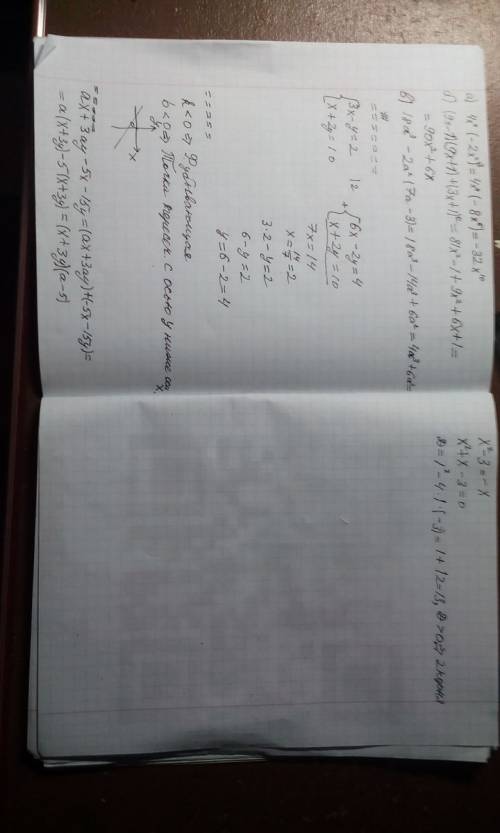 а) 4x⁴(-2x²)³=4x⁴(-8x⁶)=-32x¹⁰
б) (9x-1)(9x+1)+(3x+1)²=81x²-1+9x²+6x+1=
=90x²+6x
в) 18a³-2a²(7a-3)=18a³-14a³+6a²=4a³+6a²=
=======
{3x-y=2 |2 +{6x-2y=4
{x+2y=10 {x+2y=10
7x=14
x=14/7=2
3·2-y=2
6-y=2
y=6-2=4
=====
k<0⇒ Убывающая
b<0⇒ Точки пересеч. с осью y ниже оси x.
y
x
=====
ax+3ay-5x-15y=(ax+3ay)+(-5x-15y)=
=a(x+3y)-5(x+3y)=(x+3y)(a-5)
x²-3=-x
x²+x-3=0
D=1²-4·1·(-3)=1+12=13, D>0,⇒ 2 корня